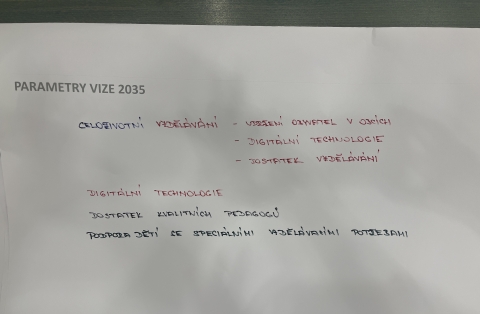 PARAMETRY VIZE 2035
CELOŽIVOTNÍ VZDĚLÁVÁNÍ - UDRŽENÍ OBYVATEL V OBCÍCH
- DIGITÁLNÍ TECHNOLOGIE
- DOSTATEK VZDĚLÁVÁNÍ
DIGITÁLNÍ TECHNOLOGIE
DOSTATEK KVALITNÍCH PEDAGOGŮ
PODPORA DĚTÍ SE SPECIÁLNÍMI VZDĚLÁVACÍMI POTŘEBAMI